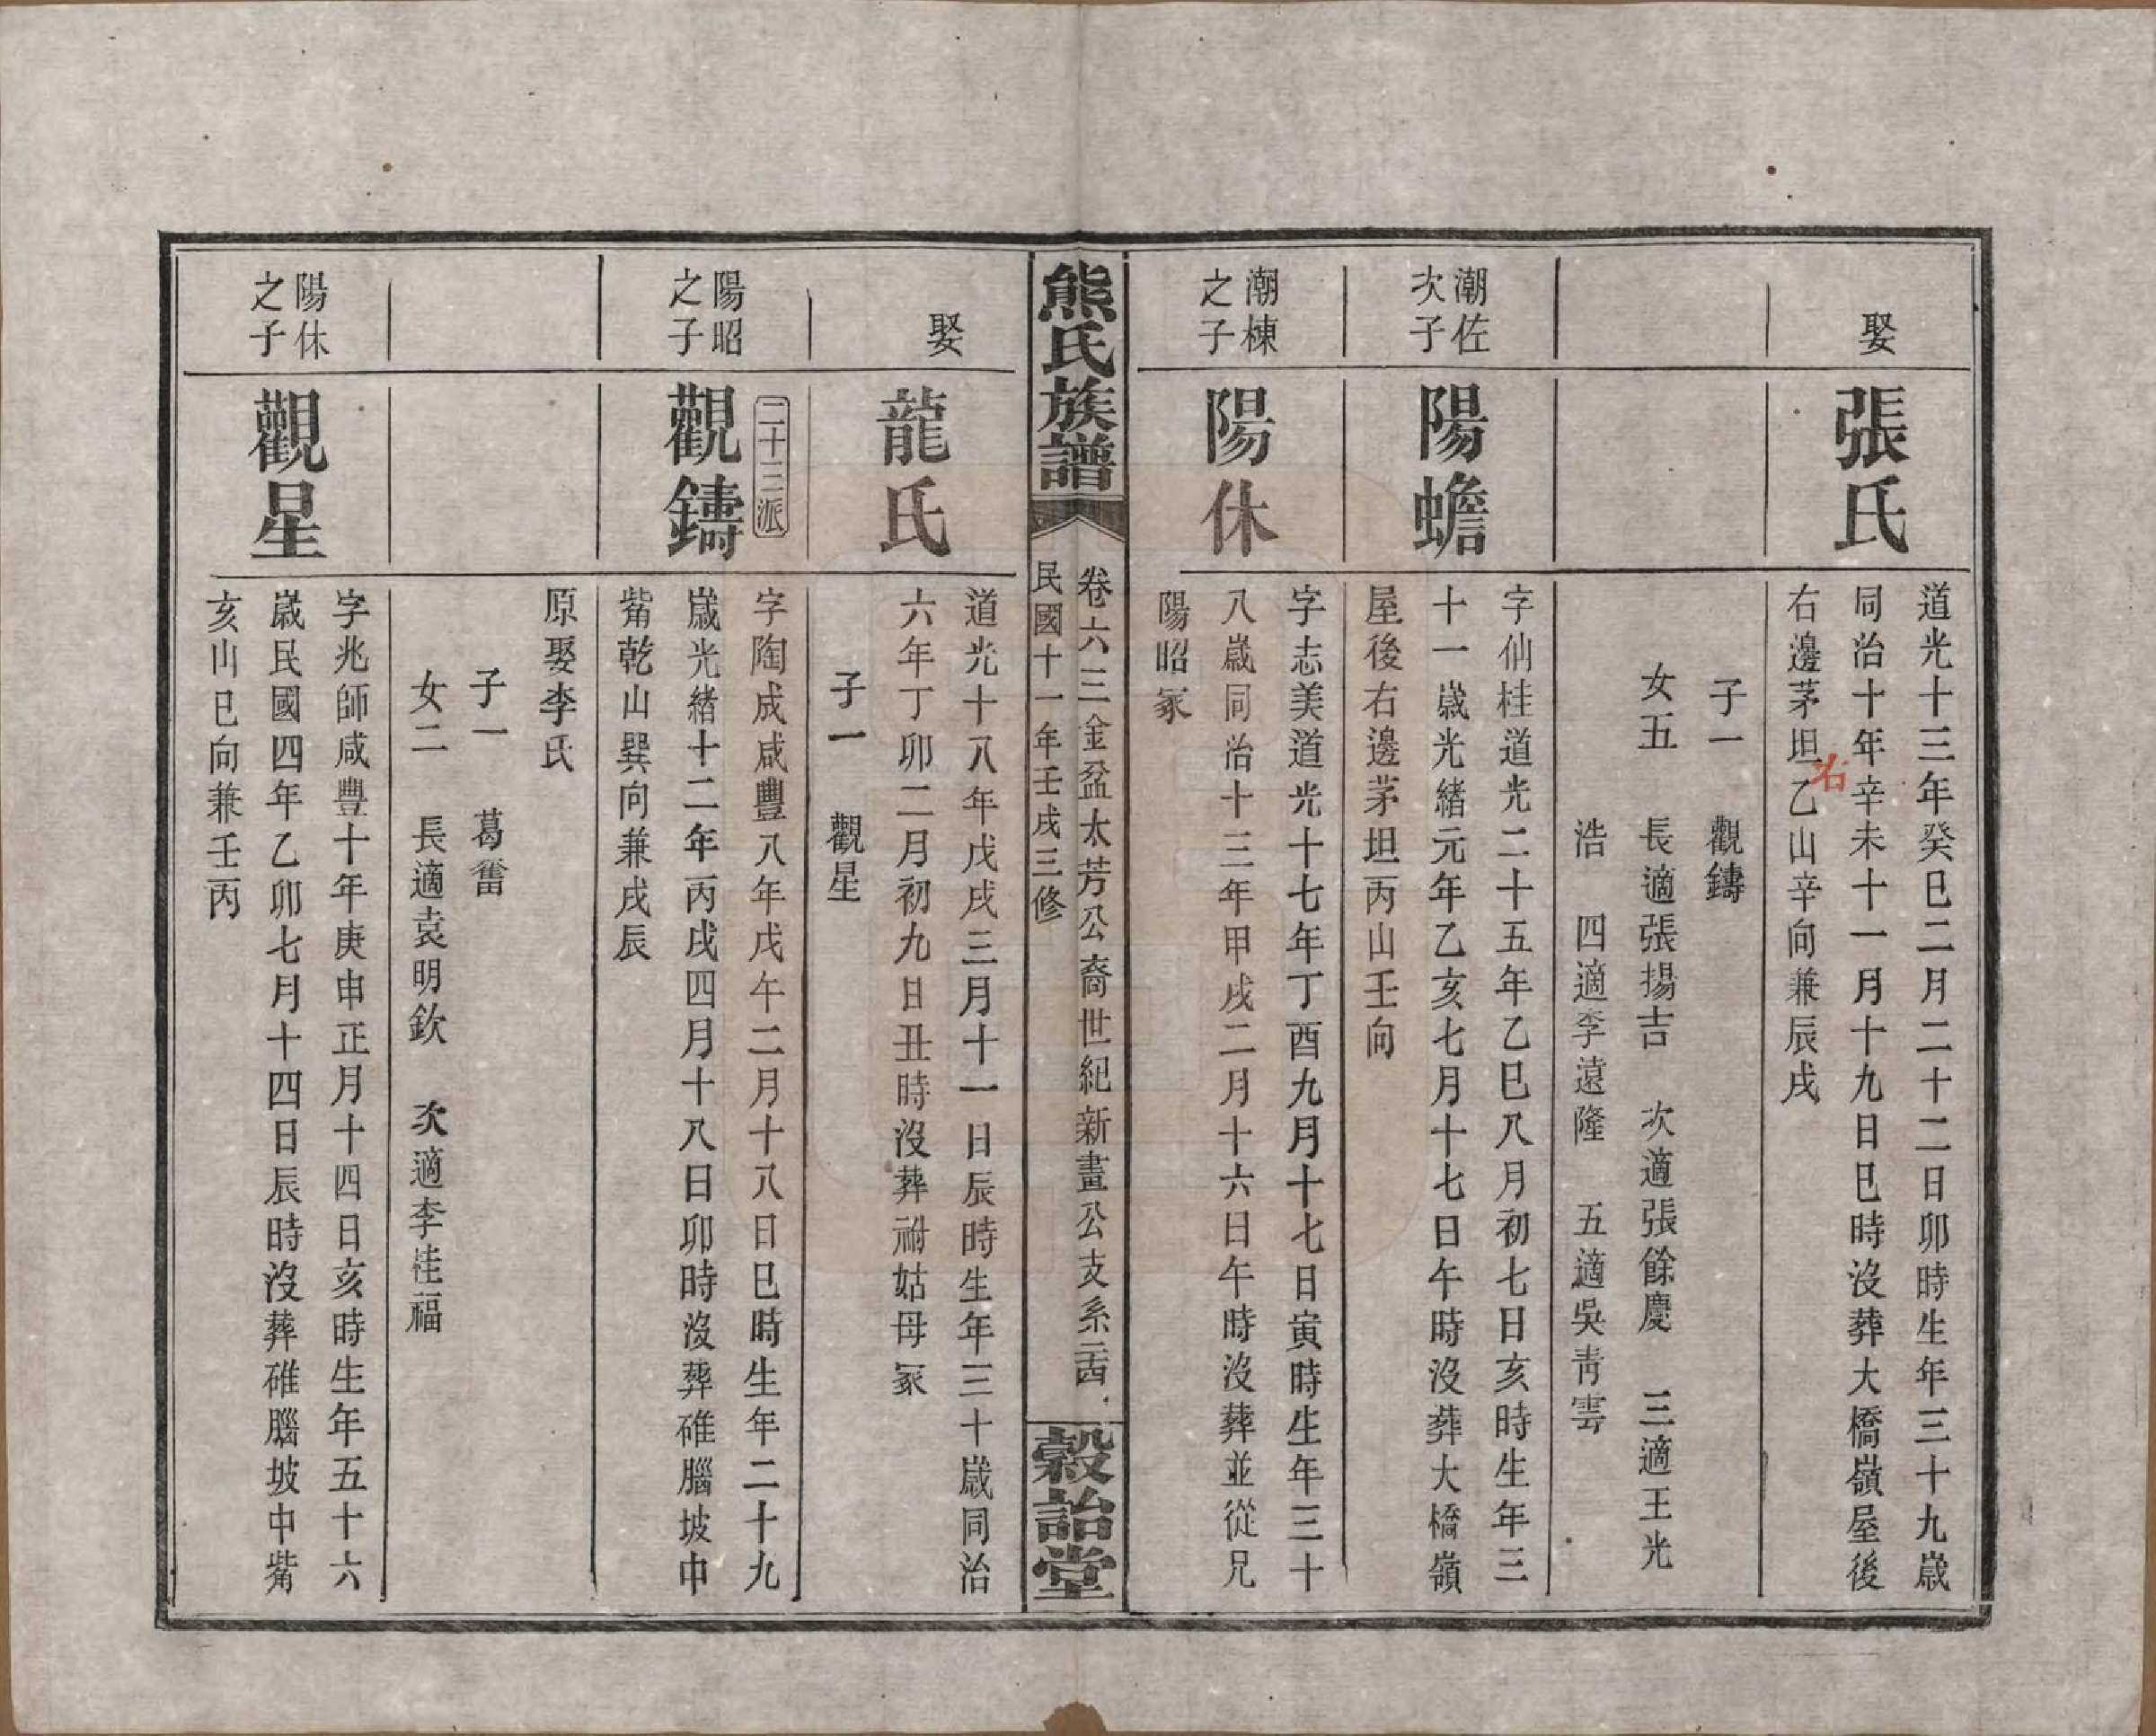 娶
張氏
道光十三年癸巳二月二十二日卯時生年三十九歲
同治十年辛未十一月十九日巳時沒葬大橋嶺屋後
右
右邊茅坦乙山辛向兼辰戌
子一　觀鑄
女五　長適張揚吉　次適張餘慶　三適王光
浩　四適李遠隆　五適吳靑雲
潮佐
次子
陽蟾
字仙桂道光二十五年乙巳八月初七日亥時生年三
十一歲光緖元年乙亥七月十七日午時沒葬大橋嶺
屋後右邊茅坦丙山壬向
潮棟
之子
陽休
字志美道光十七年丁酉九月十七日寅時生年三十
八歲同治十三年甲戌二月十六日午時沒葬並從兄
陽昭冢
熊氏族譜
卷六三金盆太芳公裔世紀新畫公支系三四
民國十一年壬戌三修
穀詒堂
娶
龍氏
道光十八年戊戌三月十一日辰時生年三十歲同治
六年丁卯二月初九日丑時沒葬祔姑母冢
子一　觀星
二十三派
陽昭
之子
觀鑄
字陶成咸豐八年戊午二月十八日巳時生年二十九
歲光緖十二年丙戌四月十八日卯時沒葬碓腦坡中
觜乾山巽向兼戌辰
原娶李氏
子一　葛畨
女二　長適袁明欽　次適李桂福
陽休
之子
觀星
字兆師咸豐十年庚申正月十四日亥時生年五十六
歲民國四年乙卯七月十四日辰時沒葬碓腦坡中觜
亥山巳向兼壬丙